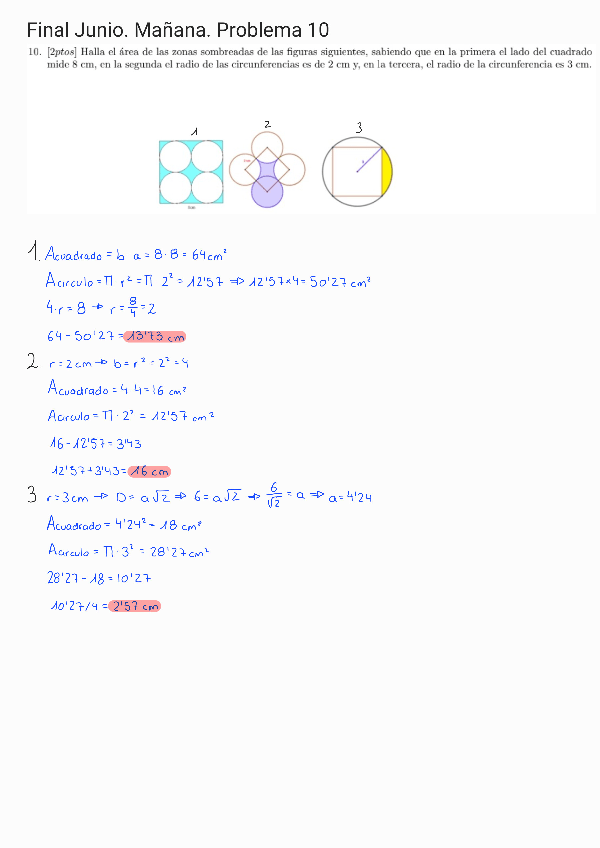 Final Junio. Mañana. Problema 10
10. [2ptos] Halla el área de las zonas sombreadas de las figuras siguientes, sabiendo que en la primera el lado del cuadrado
mide 8 cm, en la segunda el radio de las circunferencias es de 2 cm y, en la tercera, el radio de la circunferencia es 3 cm.
1 2 3
1. Acuadrado = b a = 8·8 = 64cm²
Acirculo = π r² = π 2² = 12'57 ⇒ 12'57×4 = 50'27 cm²
4·r = 8 → r = 8/4 = 2
64 - 50'27 = 13'73 cm
2 r = 2cm → b = r² = 2² = 4
Acuadrado = 4 4 = 16 cm²
Acirculo = π · 2² = 12'57 cm²
16 - 12'57 = 3'43
12'57 + 3'43 = 16 cm
3 r = 3cm → D = a√2 ⇒ 6 = a√2 ⇒ 6/√2 = a ⇒ a = 4'24
Acuadrado = 4'24² = 18 cm²
Acirculo = π · 3² = 28'27 cm²
28'27 - 18 = 10'27
10'27/4 = 2'57 cm